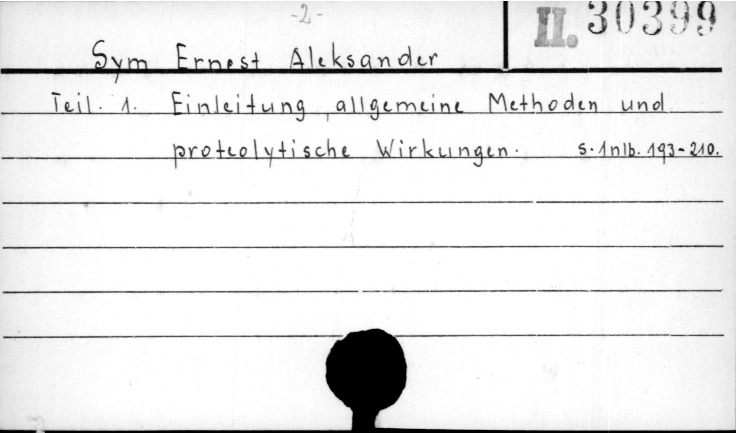 -2-
II. 30399
Sym Ernest Aleksander
Teil. 1. Einleitung, allgemeine Methoden und
proteolytische Wirkungen. s. 1nlb. 193-210.